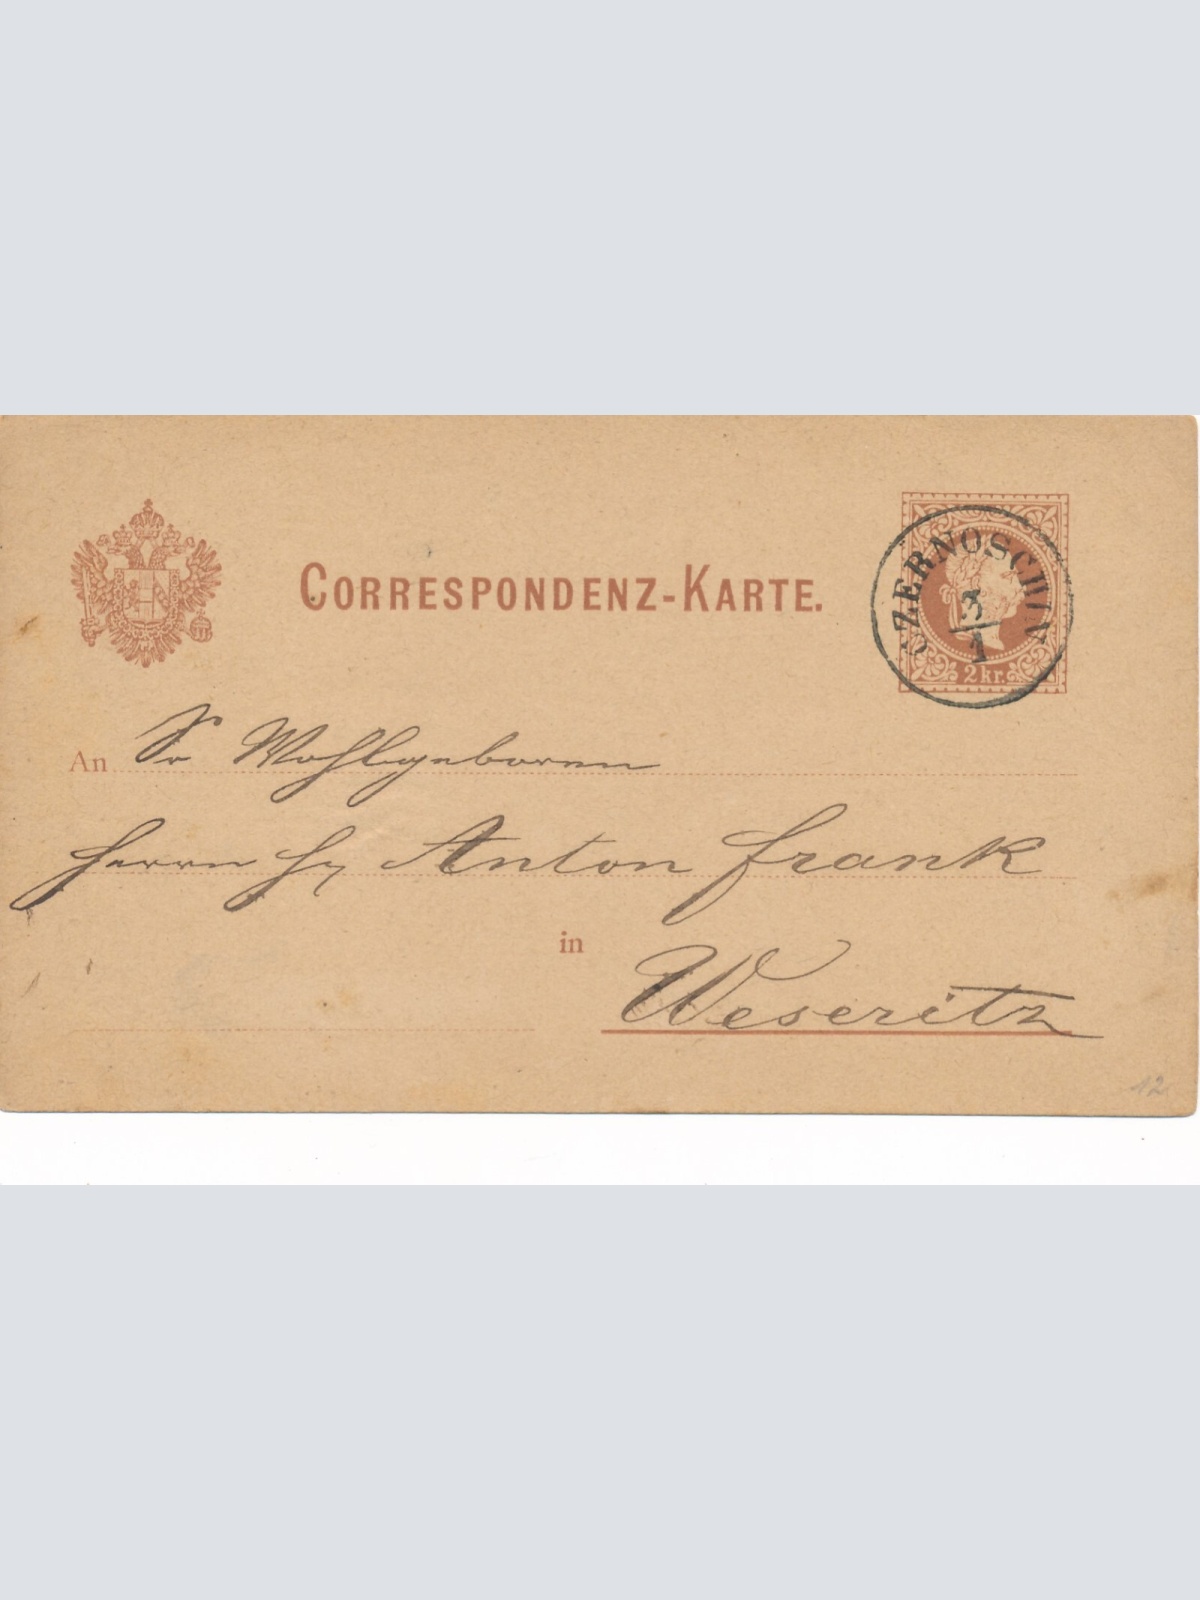 CORRESPONDENZ-KARTE.
CZERNOSCHIN
3
1
2 kr.
An Sr Wohlgeboren
Herrn Hr Anton Frank
in
Weseritz
12